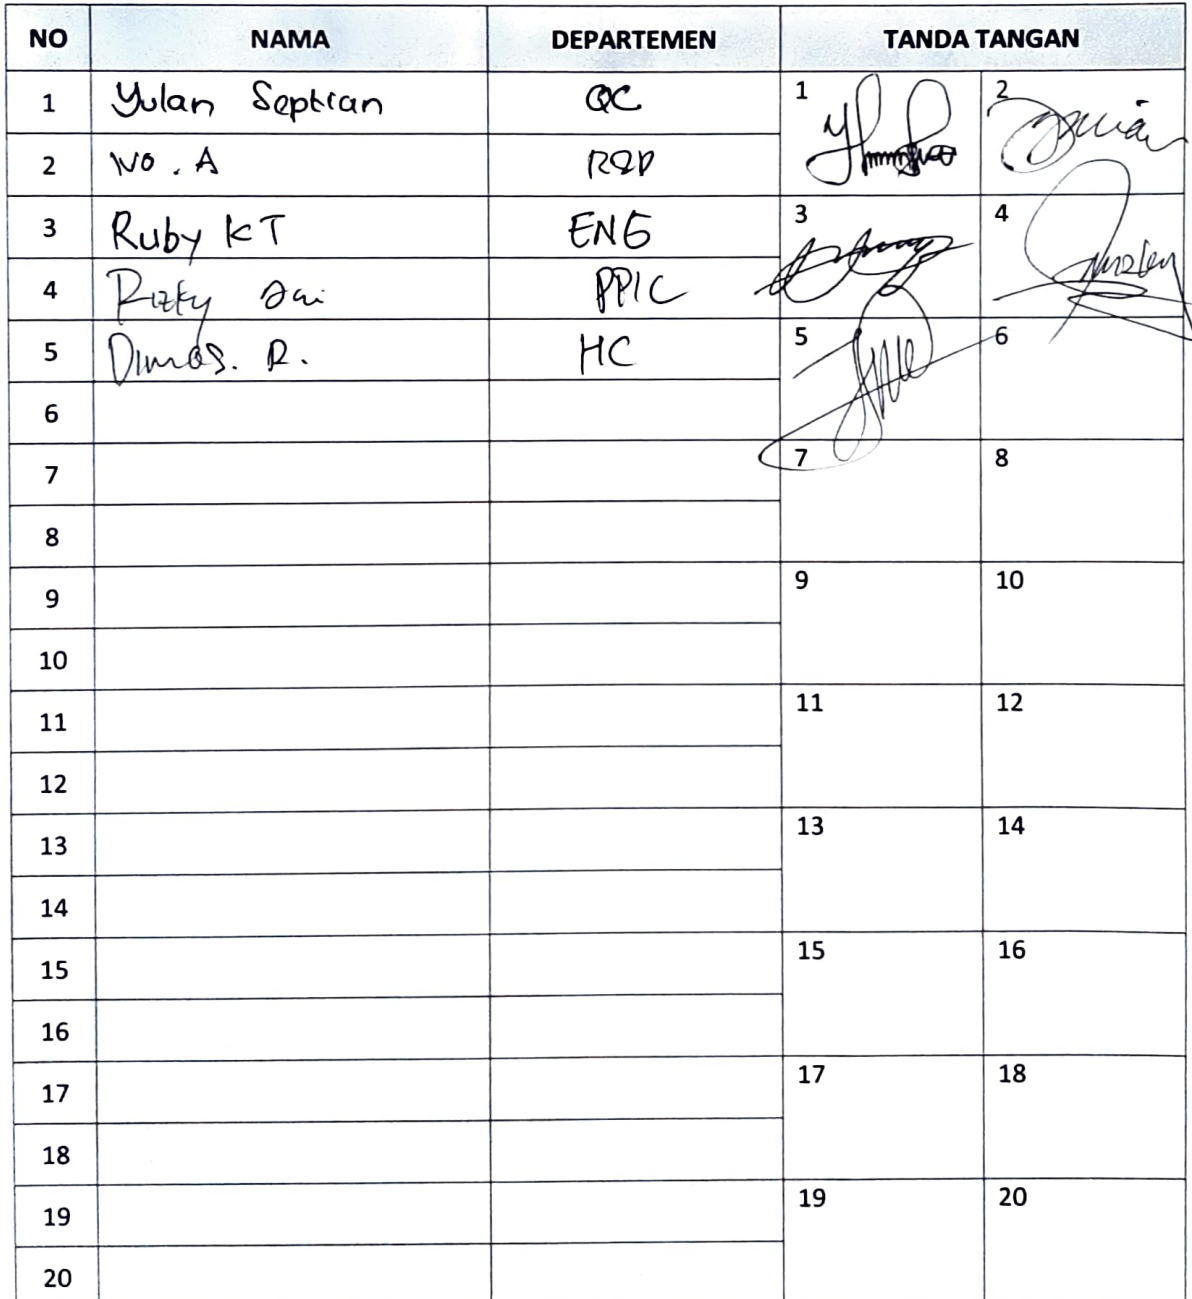 NO NAMA DEPARTEMEN TANDA TANGAN
1 Yulan Septian QC 1 2
2 NO. A R&D
3 Ruby KT ENG 3 4
4 Rizky PPIC
5 Dimas. R. HC 5 6
6
7 7 8
8
9 9 10
10
11 11 12
12
13 13 14
14
15 15 16
16
17 17 18
18
19 19 20
20